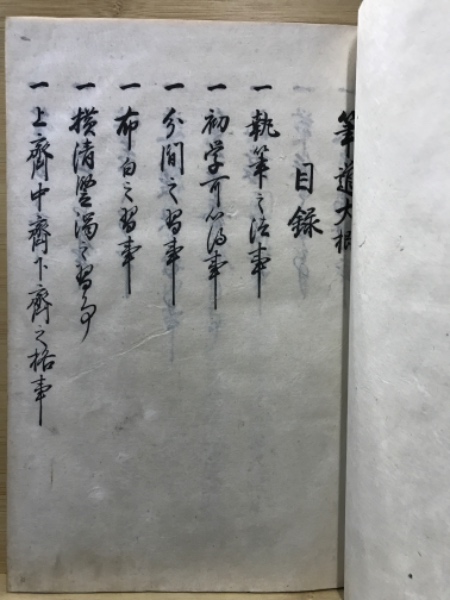 筆道大概
目録
一 執筆之法事
一 初学可心得事
一 分間之習事
一 布白之習事
一 横清竪濁之習事
一 上齊中齊下齊之格事